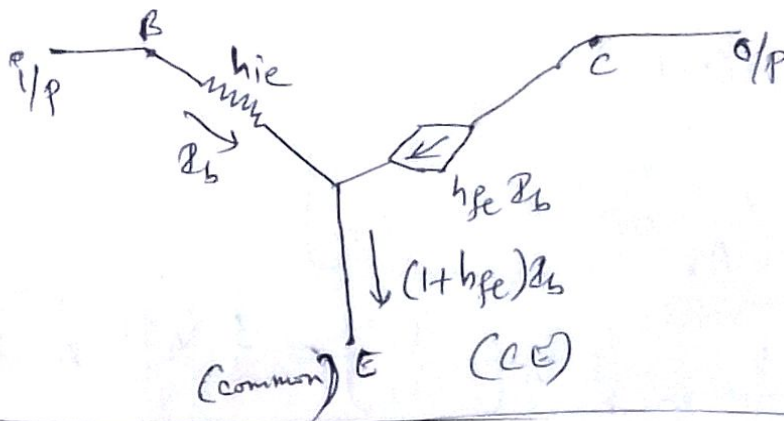 B
hie
i/p
I_b
C
O/P
hfe I_b
(1+hfe)I_b
(common) E
(CE)